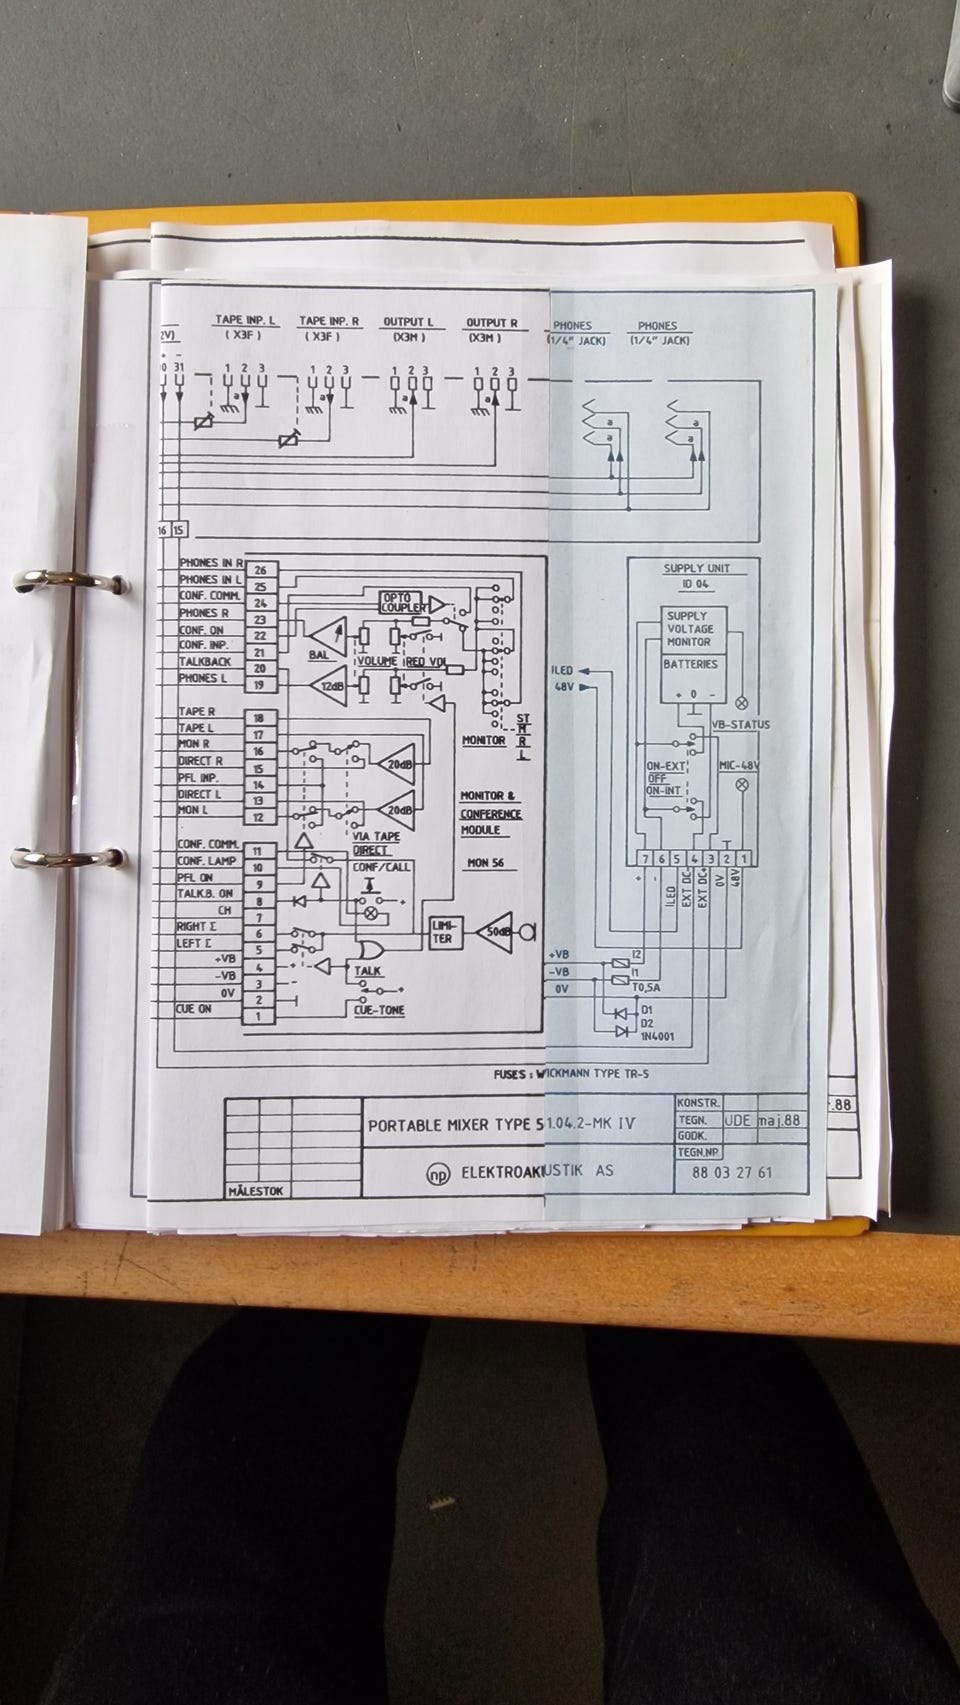 TAPE INP. L
TAPE INP. R
OUTPUT L
OUTPUT R
PHONES
PHONES
2V)
( X3F )
( X3F )
(X3M)
(X3M)
(1/4" JACK)
(1/4" JACK)
+ -
0 31
1 2 3
1 2 3
1 2 3
1 2 3
a
a
a
a
a
a
a
a
16 15
PHONES IN R 26
PHONES IN L 25
CONF. COMM. 24
PHONES R 23
CONF. ON 22
CONF. INP. 21
TALKBACK 20
PHONES L 19
OPTO
COUPLER
BAL
VOLUME
RED VOL
12dB
TAPE R 18
TAPE L 17
MON R 16
DIRECT R 15
PFL INP. 14
DIRECT L 13
MON L 12
20dB
20dB
VIA TAPE
DIRECT
MONITOR
ST
M
R
L
MONITOR &
CONFERENCE
MODULE
MON 56
CONF. COMM. 11
CONF. LAMP 10
PFL ON 9
TALK.B. ON 8
CH 7
RIGHT Σ 6
LEFT Σ 5
+VB 4
-VB 3
0V 2
CUE ON 1
CONF/CALL
+
LIMI-
TER
50dB
+
-
TALK
+
CUE-TONE
SUPPLY UNIT
ID 04
SUPPLY
VOLTAGE
MONITOR
BATTERIES
+ 0 -
ILED
48V
VB-STATUS
ON-EXT
OFF
ON-INT
MIC-48V
7 6 5 4 3 2 1
+
-
ILED
EXT DC-
EXT DC+
0V
48V
+VB
-VB
0V
I2
I1
T0,5A
D1
D2
1N4001
FUSES : WICKMANN TYPE TR-5
PORTABLE MIXER TYPE 51.04.2-MK IV
np ELEKTROAKUSTIK AS
MÅLESTOK
KONSTR.
TEGN. UDE maj.88
GODK.
TEGN.NR.
88 03 27 61
.88